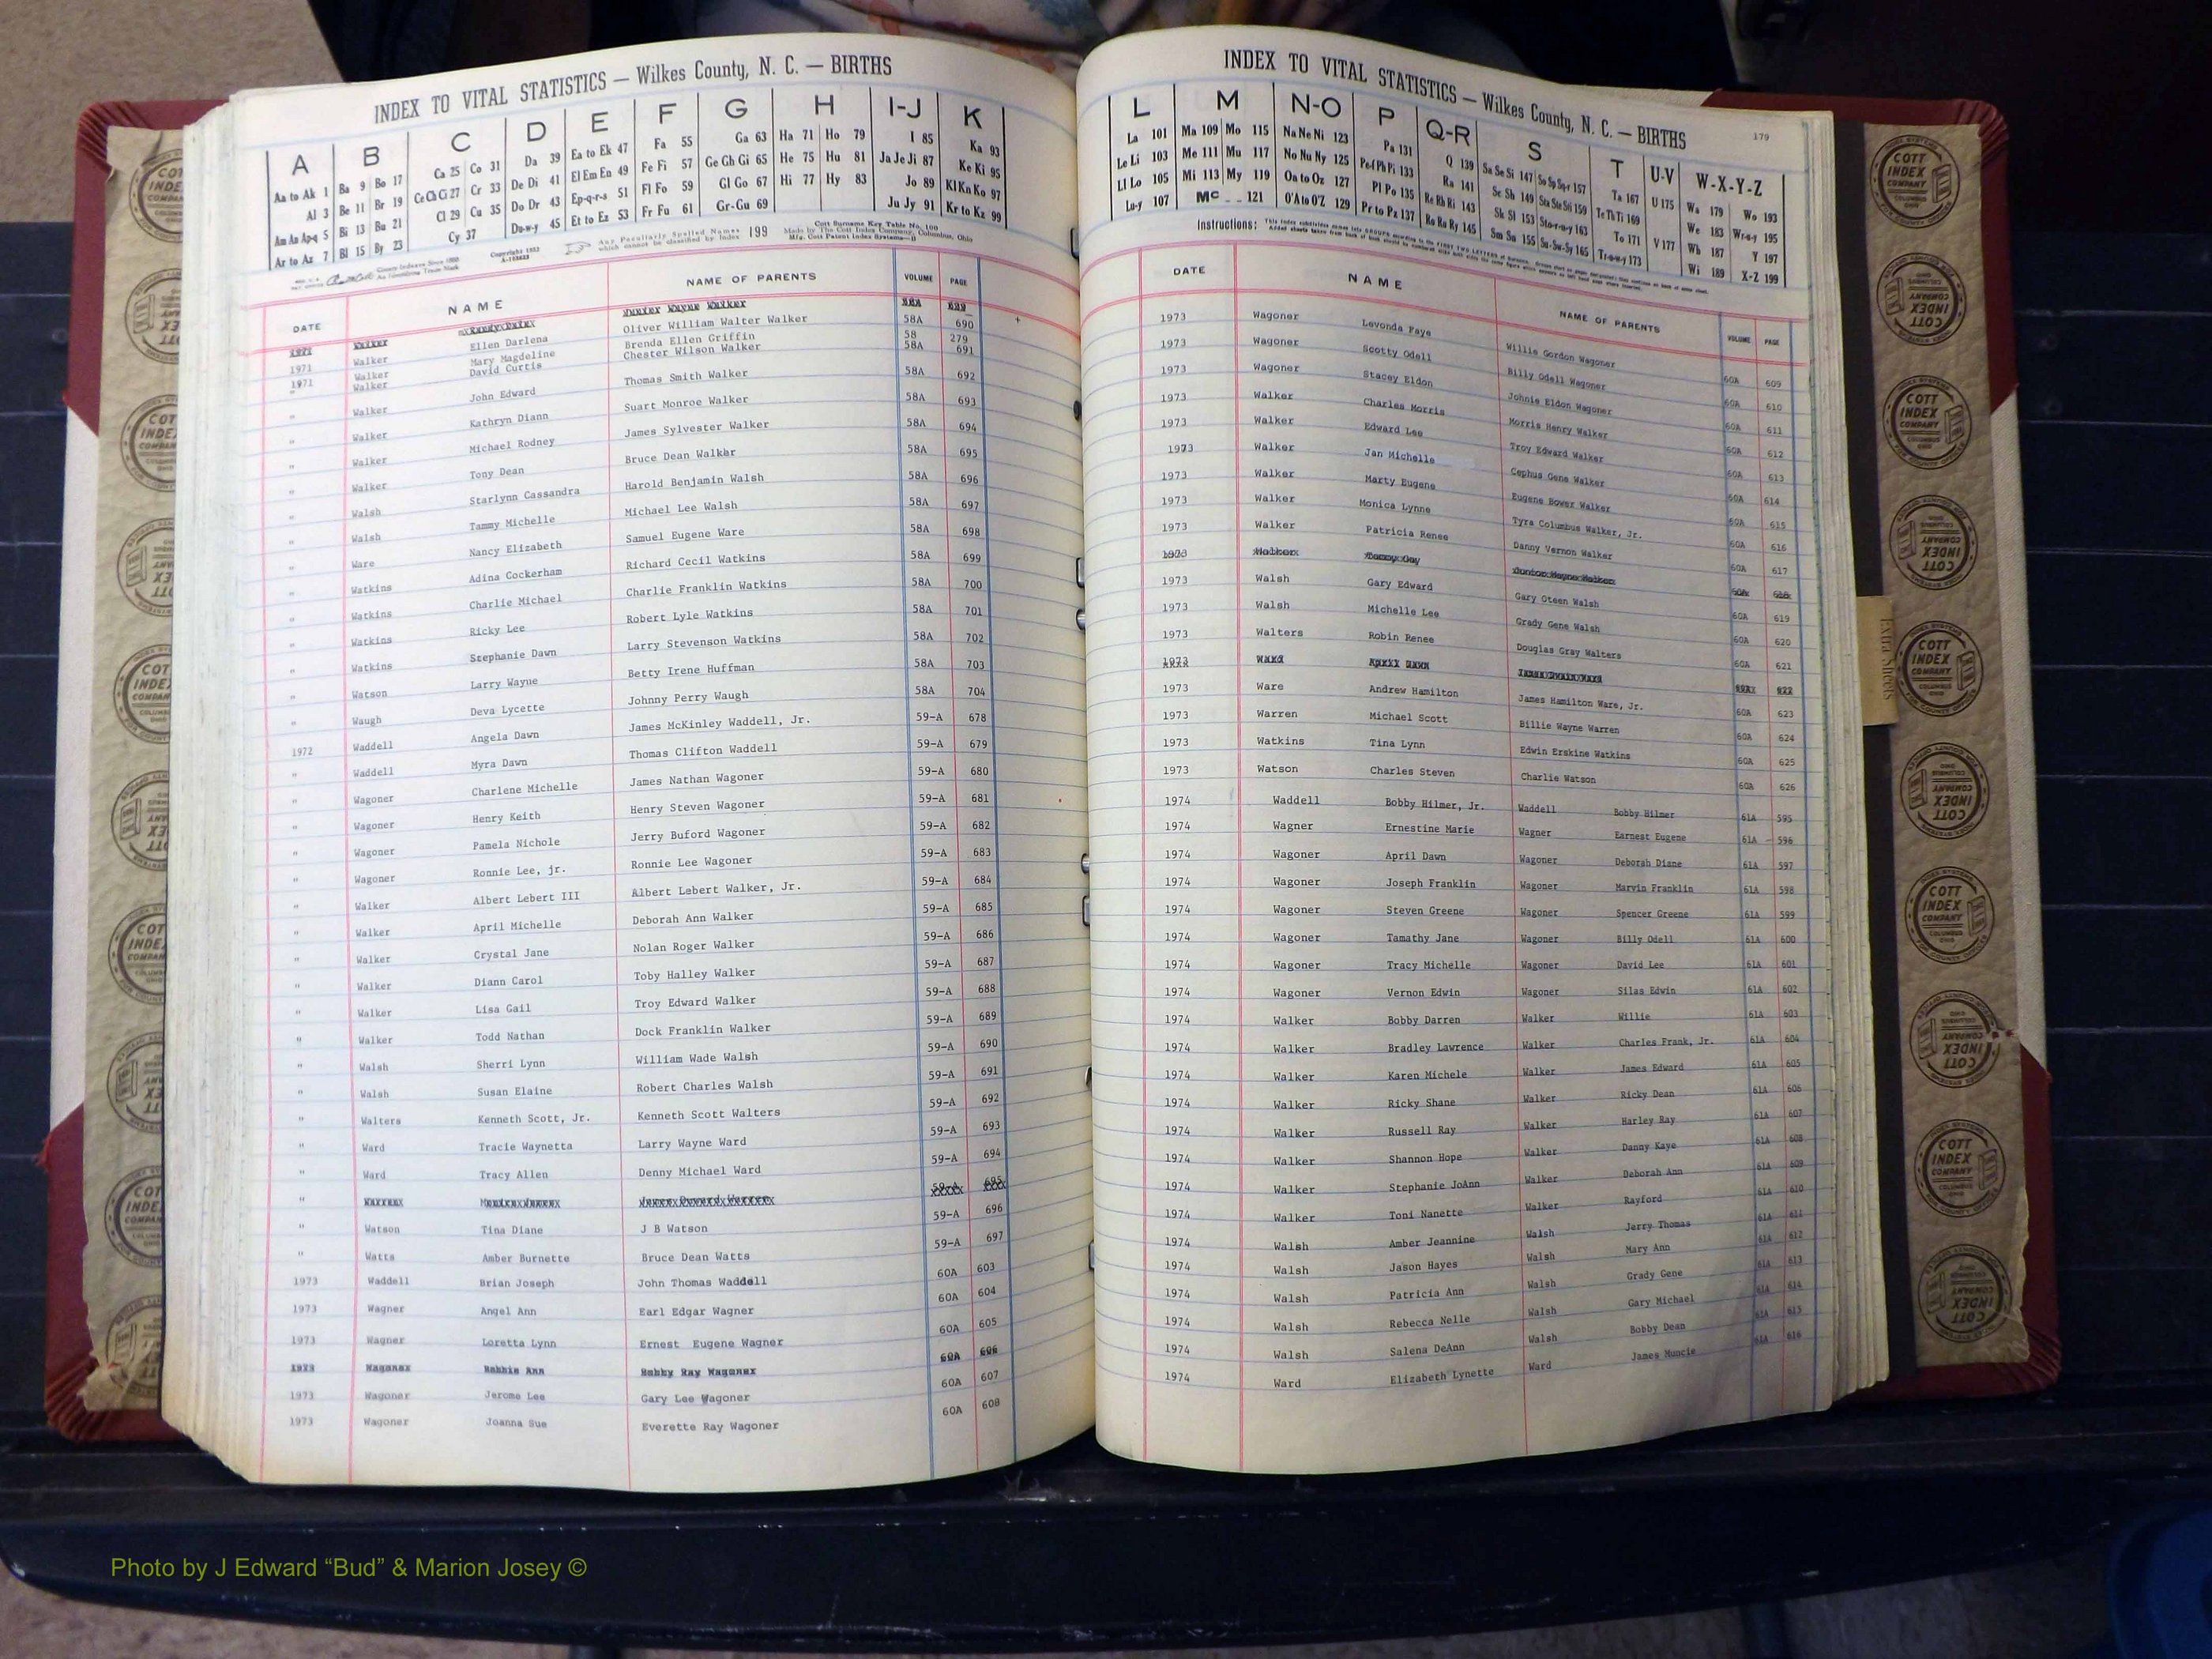 INDEX TO VITAL STATISTICS — Wilkes County, N. C. — BIRTHS
A B C D E F G H I-J K
Aa to Ak 1 Ba 9 Bo 17 Ca 25 Co 31 Da 39 Ea to Ek 47 Fa 55 Ga 63 Ha 71 Ho 79 I 85 Ka 93
Al 3 Be 11 Br 19 Ce Ch Ci 27 Cr 33 De Di 41 El Em En 49 Fe Fi 57 Ge Gh Gi 65 He 75 Hu 81 Ja Je Ji 87 Ke Ki 95
Am An Ap-q 5 Bi 13 Bu 21 Cl 29 Cu 35 Do Dr 43 Ep-q-r-s 51 Fl Fo 59 Gl Go 67 Hi 77 Hy 83 Jo 89 Kl Kn Ko 97
Ar to Az 7 Bl 15 By 23 Cy 37 Du-w-y 45 Et to Ez 53 Fr Fu 61 Gr-Gu 69 Ju Jy 91 Kr to Kz 99
County Indexes Since 1888
Copyright 1932
A-103623
Any Peculiarly Spelled Names which cannot be classified by Index 199
Cott Surname Key Table No. 100
Made by The Cott Index Company, Columbus, Ohio
DATE NAME NAME OF PARENTS VOLUME PAGE
1971 Walker Junior Wayne Walker 58A 689
1971 Walker Ellen Darlena Oliver William Walter Walker 58A 690
1971 Walker Mary Magdeline Brenda Ellen Griffin 58 279
" Walker David Curtis Chester Wilson Walker 58A 691
" Walker John Edward Thomas Smith Walker 58A 692
" Walker Kathryn Diann Suart Monroe Walker 58A 693
" Walker Michael Rodney James Sylvester Walker 58A 694
" Walker Tony Dean Bruce Dean Walker 58A 695
" Walsh Starlynn Cassandra Harold Benjamin Walsh 58A 696
" Walsh Tammy Michelle Michael Lee Walsh 58A 697
" Ware Nancy Elizabeth Samuel Eugene Ware 58A 698
" Watkins Adina Cockerham Richard Cecil Watkins 58A 699
" Watkins Charlie Michael Charlie Franklin Watkins 58A 700
" Watkins Ricky Lee Robert Lyle Watkins 58A 701
" Watkins Stephanie Dawn Larry Stevenson Watkins 58A 702
" Watson Larry Wayne Betty Irene Huffman 58A 703
" Waugh Deva Lycette Johnny Perry Waugh 58A 704
1972 Waddell Angela Dawn James McKinley Waddell, Jr. 59-A 678
" Waddell Myra Dawn Thomas Clifton Waddell 59-A 679
" Wagoner Charlene Michelle James Nathan Wagoner 59-A 680
" Wagoner Henry Keith Henry Steven Wagoner 59-A 681
" Wagoner Pamela Nichole Jerry Buford Wagoner 59-A 682
" Wagoner Ronnie Lee, jr. Ronnie Lee Wagoner 59-A 683
" Walker Albert Lebert III Albert Lebert Walker, Jr. 59-A 684
" Walker April Michelle Deborah Ann Walker 59-A 685
" Walker Crystal Jane Nolan Roger Walker 59-A 686
" Walker Diann Carol Toby Halley Walker 59-A 687
" Walker Lisa Gail Troy Edward Walker 59-A 688
" Walker Todd Nathan Dock Franklin Walker 59-A 689
" Walsh Sherri Lynn William Wade Walsh 59-A 690
" Walsh Susan Elaine Robert Charles Walsh 59-A 691
" Walters Kenneth Scott, Jr. Kenneth Scott Walters 59-A 692
" Ward Tracie Waynetta Larry Wayne Ward 59-A 693
" Ward Tracy Allen Denny Michael Ward 59-A 694
" Warren 59-A 695
" Watson Tina Diane J B Watson 59-A 696
" Watts Amber Burnette Bruce Dean Watts 59-A 697
1973 Waddell Brian Joseph John Thomas Waddell 60A 603
1973 Wagner Angel Ann Earl Edgar Wagner 60A 604
1973 Wagner Loretta Lynn Ernest Eugene Wagner 60A 605
1973 Wagoner Bobbie Ann Bobby Ray Wagoner 60A 606
1973 Wagoner Jerome Lee Gary Lee Wagoner 60A 607
1973 Wagoner Joanna Sue Everette Ray Wagoner 60A 608
INDEX TO VITAL STATISTICS — Wilkes County, N. C. — BIRTHS 179
L M N-O P Q-R S T U-V W-X-Y-Z
La 101 Ma 109 Mo 115 Na Ne Ni 123 Pa 131 Q 139 Sa Se Si 147 So Sp Sq-r 157 Ta 167 U 175 Wa 179 Wo 193
Le Li 103 Me 111 Mu 117 No Nu Ny 125 Pe-f Ph Pi 133 Ra 141 Sc Sh 149 Sta Ste Sti 159 Te Th Ti 169 We 183 Wr-u-y 195
Ll Lo 105 Mi 113 My 119 Oa to Oz 127 Pl Po 135 Re Rh Ri 143 Sk Sl 153 Sto-r-u-y 163 To 171 V 177 Wh 187 Y 197
Lu-y 107 Mc 121 O'A to O'Z 129 Pr to Pz 137 Ro Ru Ry 145 Sm Sn 155 Su-Sw-Sy 165 Tr-u-w-y 173 Wi 189 X-Z 199
Instructions:
DATE NAME NAME OF PARENTS VOLUME PAGE
1973 Wagoner Levonda Faye Willie Gordon Wagoner 60A 609
1973 Wagoner Scotty Odell Billy Odell Wagoner 60A 610
1973 Wagoner Stacey Eldon Johnie Eldon Wagoner 60A 611
1973 Walker Charles Morris Morris Henry Walker 60A 612
1973 Walker Edward Lee Troy Edward Walker 60A 613
1973 Walker Jan Michelle Cephus Gene Walker 60A 614
1973 Walker Marty Eugene Eugene Bower Walker 60A 615
1973 Walker Monica Lynne Tyra Columbus Walker, Jr. 60A 616
1973 Walker Patricia Renee Danny Vernon Walker 60A 617
1973 Walker Tommy Gay Junior Wayne Walker 60A 618
1973 Walsh Gary Edward Gary Oteen Walsh 60A 619
1973 Walsh Michelle Lee Grady Gene Walsh 60A 620
1973 Walters Robin Renee Douglas Gray Walters 60A 621
1973 Ward 622
1973 Ware Andrew Hamilton James Hamilton Ware, Jr. 60A 623
1973 Warren Michael Scott Billie Wayne Warren 60A 624
1973 Watkins Tina Lynn Edwin Erskine Watkins 60A 625
1973 Watson Charles Steven Charlie Watson 60A 626
1974 Waddell Bobby Hilmer, Jr. Waddell Bobby Hilmer 61A 595
1974 Wagner Ernestine Marie Wagner Earnest Eugene 61A 596
1974 Wagoner April Dawn Wagoner Deborah Diane 61A 597
1974 Wagoner Joseph Franklin Wagoner Marvin Franklin 61A 598
1974 Wagoner Steven Greene Wagoner Spencer Greene 61A 599
1974 Wagoner Tamathy Jane Wagoner Billy Odell 61A 600
1974 Wagoner Tracy Michelle Wagoner David Lee 61A 601
1974 Wagoner Vernon Edwin Wagoner Silas Edwin 61A 602
1974 Walker Bobby Darren Walker Willie 61A 603
1974 Walker Bradley Lawrence Walker Charles Frank, Jr. 61A 604
1974 Walker Karen Michele Walker James Edward 61A 605
1974 Walker Ricky Shane Walker Ricky Dean 61A 606
1974 Walker Russell Ray Walker Harley Ray 61A 607
1974 Walker Shannon Hope Walker Danny Kaye 61A 608
1974 Walker Stephanie JoAnn Walker Deborah Ann 61A 609
1974 Walker Toni Nanette Walker Rayford 61A 610
1974 Walsh Amber Jeannine Walsh Jerry Thomas 61A 611
1974 Walsh Jason Hayes Walsh Mary Ann 61A 612
1974 Walsh Patricia Ann Walsh Grady Gene 61A 613
1974 Walsh Rebecca Nelle Walsh Gary Michael 61A 614
1974 Walsh Salena DeAnn Walsh Bobby Dean 61A 615
1974 Ward Elizabeth Lynette Ward James Muncie 61A 616
Extra Sheets
COTT INDEX COMPANY COLUMBUS OHIO
Photo by J Edward “Bud” & Marion Josey ©